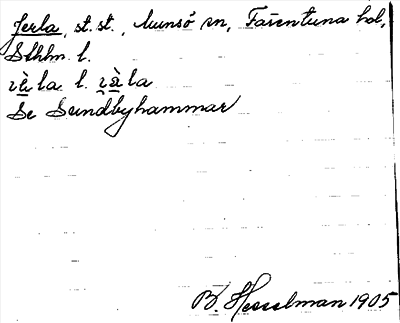 Jerla, st. st., Munsö sn, Färentuna hd,
Sthlm. l.
Se Sundbyhammar
B. Hesselman 1905